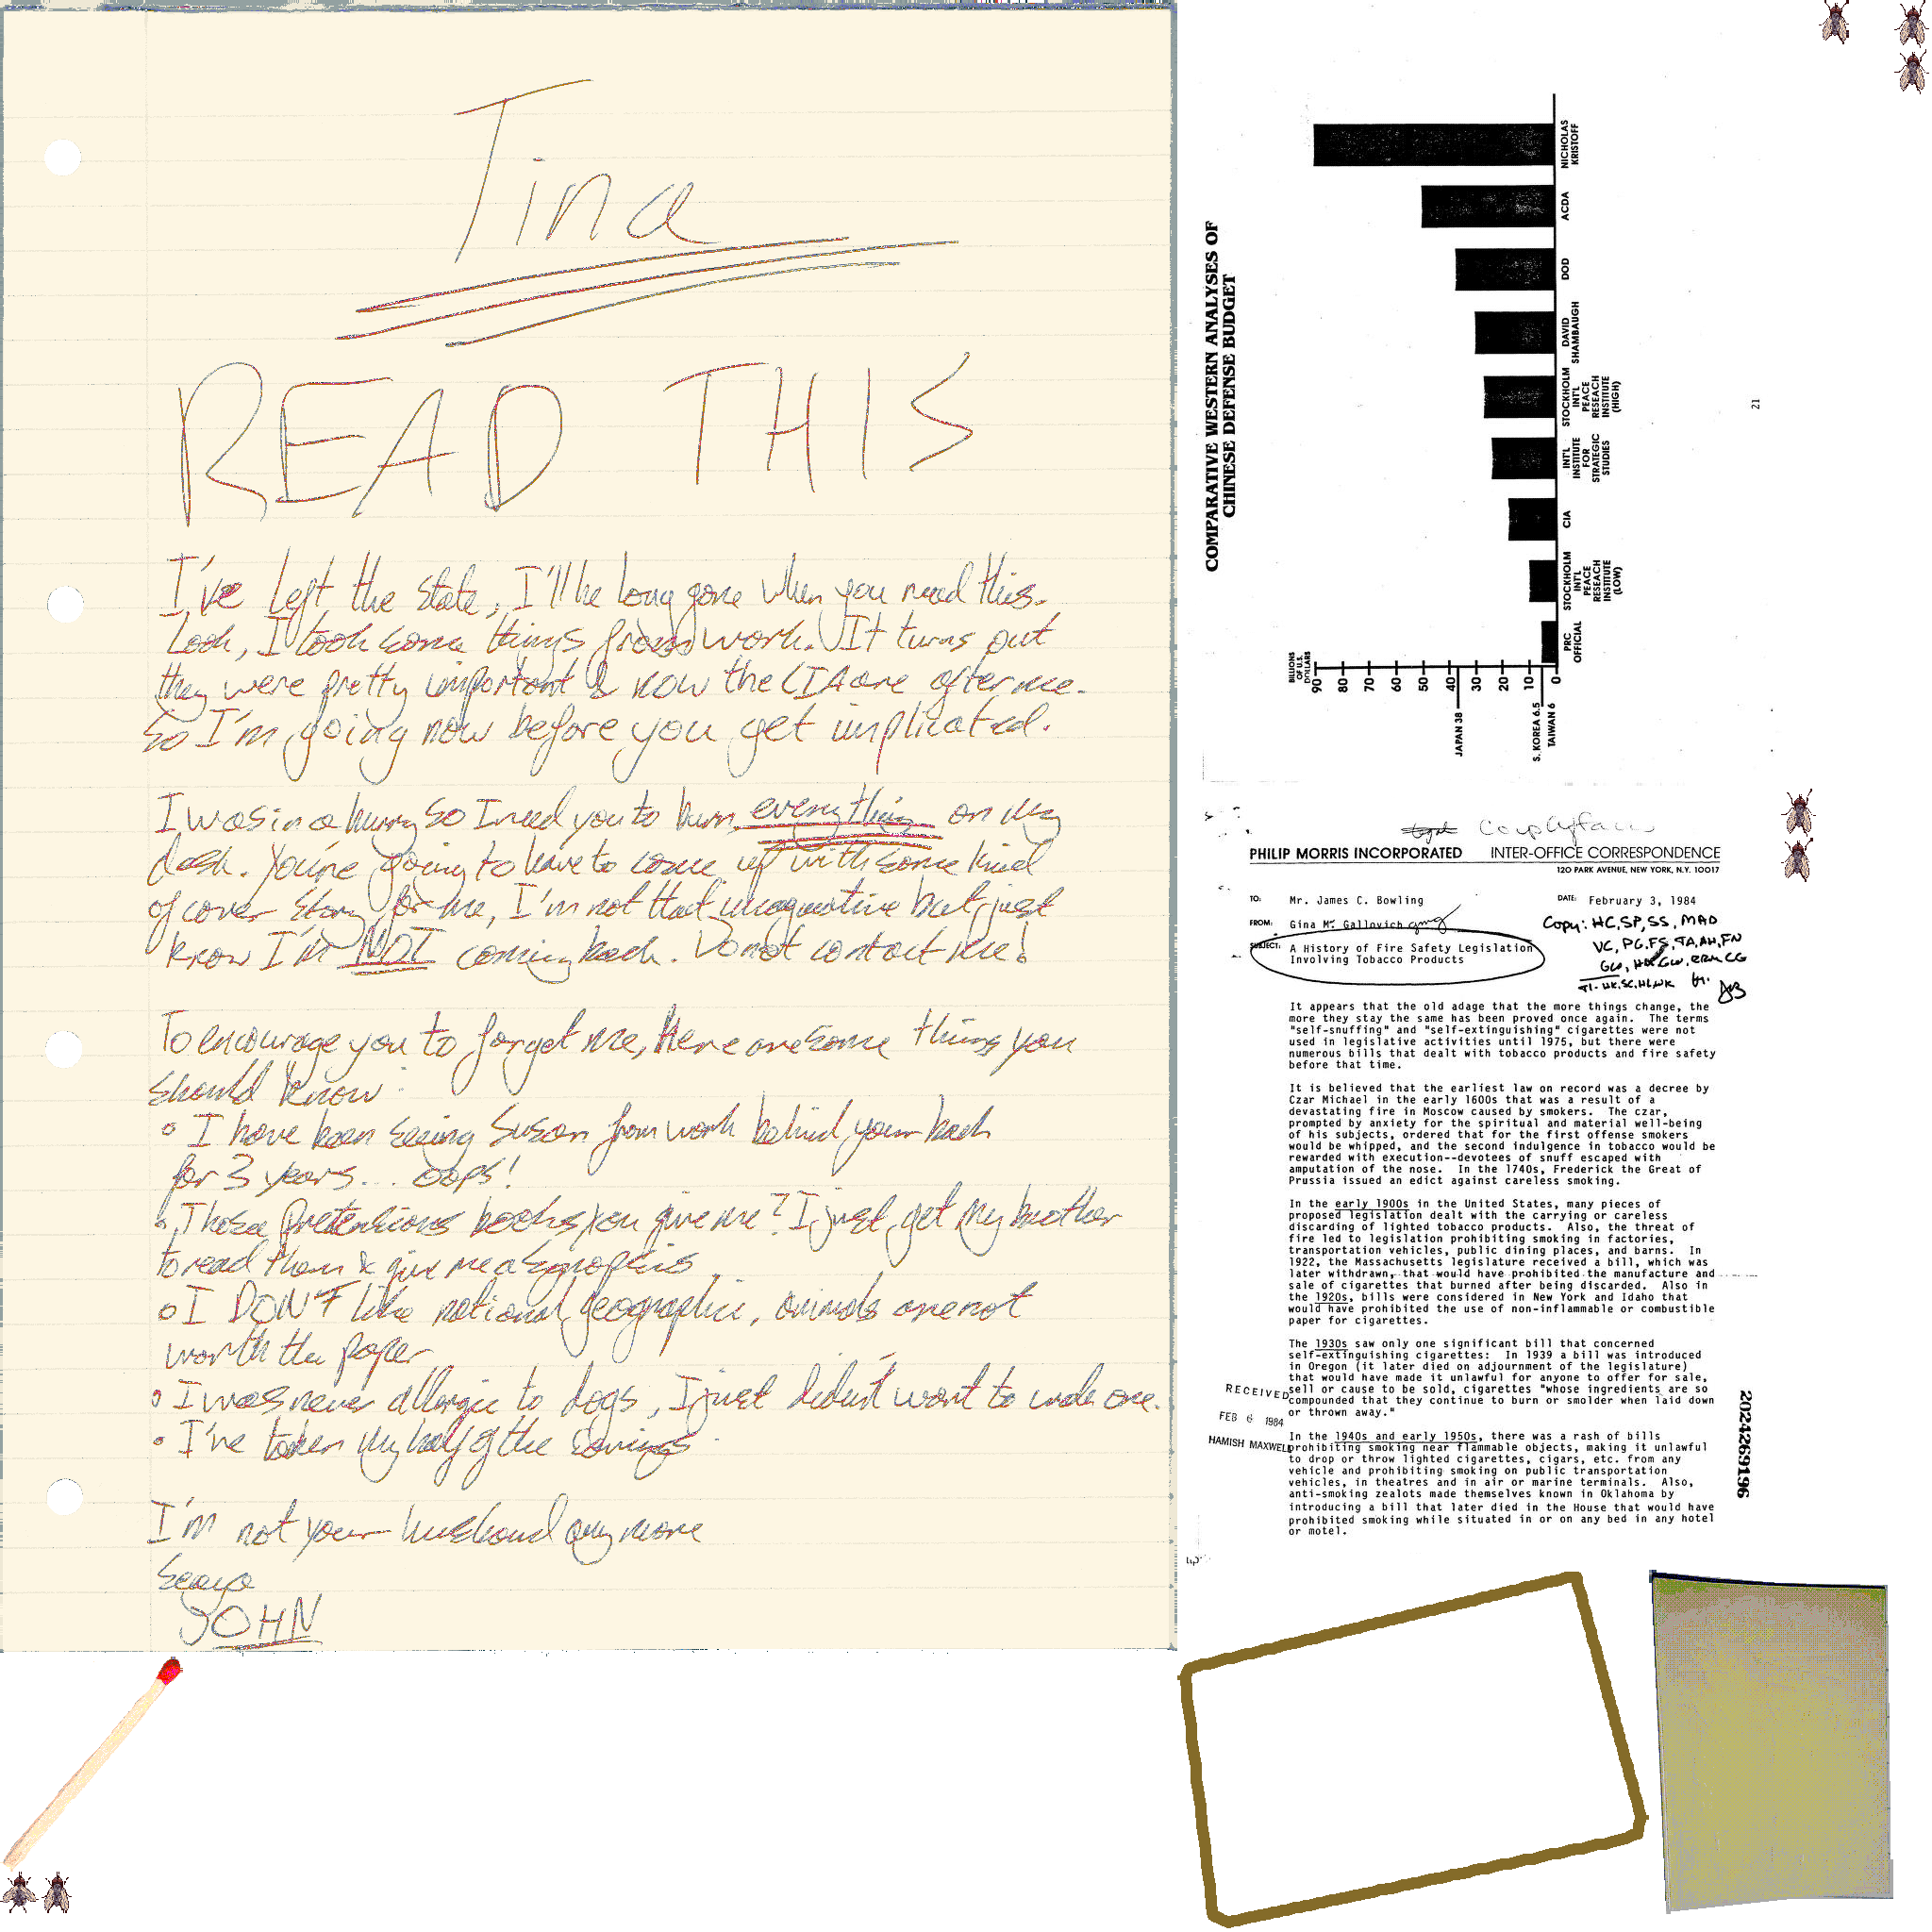 Tina
READ THIS
I've left the state, I'll be long gone when you need this.
Look, I took some things from work. It turns out
they were pretty important & now the CIA are after me.
So I'm going now before you get implicated.
I was in a hurry so I need you to burn everything on my
desk. You're going to have to come up with some kind
of cover story for me, I'm not that imaginative but just
know I'm NOT coming back. Do not contact me!
To encourage you to forget me, Here are some things you
should know:
• I have been seeing Susan from work behind your back
for 3 years... oops!
• Those pretensious books you give me? I just get my brother
to read them & give me a synopsis
• I DON'T like national geographic, animals are not
worth the paper
• I was never allergic to dogs, I just didn't want to walk one.
• I've taken my half of the savings
I'm not your husband anymore
JOHN
COMPARATIVE WESTERN ANALYSES OF
CHINESE DEFENSE BUDGET
BILLIONS
OF U.S.
DOLLARS
90
80
70
60
50
40
30
20
10
0
JAPAN 38
S. KOREA 6.5
TAIWAN 6
PRC
OFFICIAL
STOCKHOLM
INT'L
PEACE
RESEARCH
INSTITUTE
(LOW)
CIA
INT'L
INSTITUTE
FOR
STRATEGIC
STUDIES
STOCKHOLM
INT'L
PEACE
RESEACH
INSTITUTE
(HIGH)
DAVID
SHAMBAUGH
DOD
ACDA
NICHOLAS
KRISTOFF
21
PHILIP MORRIS INCORPORATED INTER-OFFICE CORRESPONDENCE
120 PARK AVENUE, NEW YORK, N.Y. 10017
TO: Mr. James C. Bowling DATE: February 3, 1984
FROM: Gina M. Gallovich
Copy: HC, SP, SS, MAD
VC, PG, FS, TA, AH, FN
SUBJECT: A History of Fire Safety Legislation
Involving Tobacco Products
It appears that the old adage that the more things change, the
more they stay the same has been proved once again. The terms
"self-snuffing" and "self-extinguishing" cigarettes were not
used in legislative activities until 1975, but there were
numerous bills that dealt with tobacco products and fire safety
before that time.
It is believed that the earliest law on record was a decree by
Czar Michael in the early 1600s that was a result of a
devastating fire in Moscow caused by smokers. The czar,
prompted by anxiety for the spiritual and material well-being
of his subjects, ordered that for the first offense smokers
would be whipped, and the second indulgence in tobacco would be
rewarded with execution--devotees of snuff escaped with
amputation of the nose. In the 1740s, Frederick the Great of
Prussia issued an edict against careless smoking.
In the early 1900s in the United States, many pieces of
proposed legislation dealt with the carrying or careless
discarding of lighted tobacco products. Also, the threat of
fire led to legislation prohibiting smoking in factories,
transportation vehicles, public dining places, and barns. In
1922, the Massachusetts legislature received a bill, which was
later withdrawn, that would have prohibited the manufacture and
sale of cigarettes that burned after being discarded. Also in
the 1920s, bills were considered in New York and Idaho that
would have prohibited the use of non-inflammable or combustible
paper for cigarettes.
The 1930s saw only one significant bill that concerned
self-extinguishing cigarettes: In 1939 a bill was introduced
in Oregon (it later died on adjournment of the legislature)
that would have made it unlawful for anyone to offer for sale,
sell or cause to be sold, cigarettes "whose ingredients are so
compounded that they continue to burn or smolder when laid down
or thrown away."
In the 1940s and early 1950s, there was a rash of bills
prohibiting smoking near flammable objects, making it unlawful
to drop or throw lighted cigarettes, cigars, etc. from any
vehicle and prohibiting smoking on public transportation
vehicles, in theatres and in air or marine terminals. Also,
anti-smoking zealots made themselves known in Oklahoma by
introducing a bill that later died in the House that would have
prohibited smoking while situated in or on any bed in any hotel
or motel.
RECEIVED
FEB 6 1984
HAMISH MAXWELL
2024269196